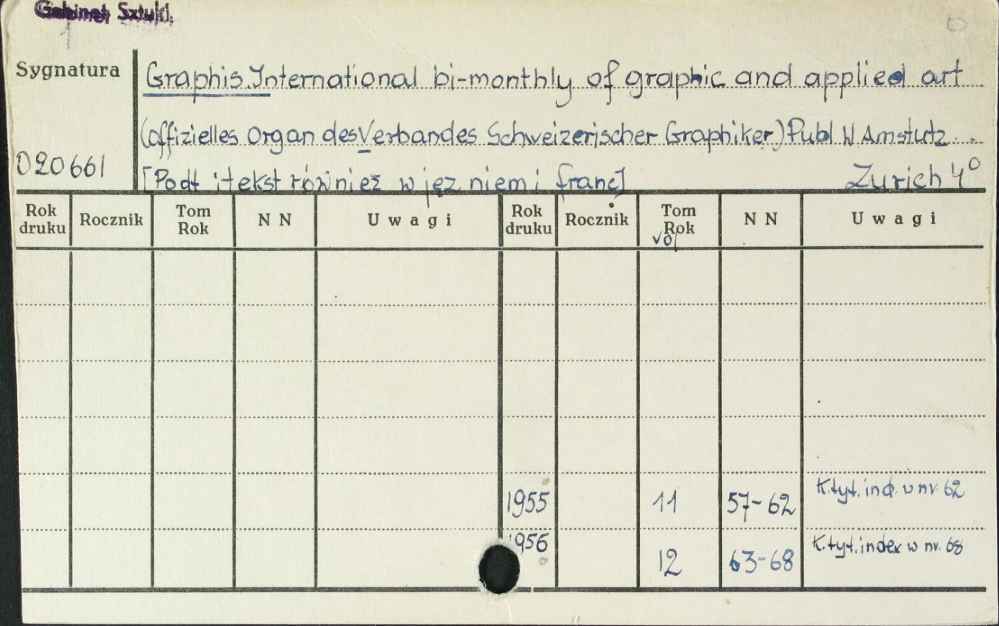 Gabinet Sztuki
1
Sygnatura
Graphis. International bi-monthly of graphic and applied art
(offizielles Organ des Verbandes Schweizerischer Graphiker) Publ W Amstutz
020661
[Podt i tekst również w jęz niem i franc]
Zurich 4°
Rok druku Rocznik Tom Rok N N Uwagi Rok druku Rocznik Tom Rok N N Uwagi
vol
1955 11 57-62 K.tyt. ind. w nr 62
1956 12 63-68 K.tyt. index w nr. 68